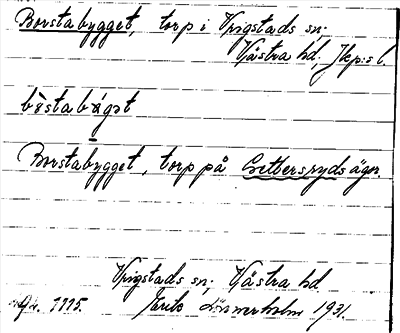 Borstabygget, torp i Vrigstads sn;
Västra hd, Jkp:s l.
bòstabýgǝt
Borstabygget, torp på Settersryds ägor.
Vrigstads sn; Västra hd
Gr. 1115. Lönnerholm 1931.